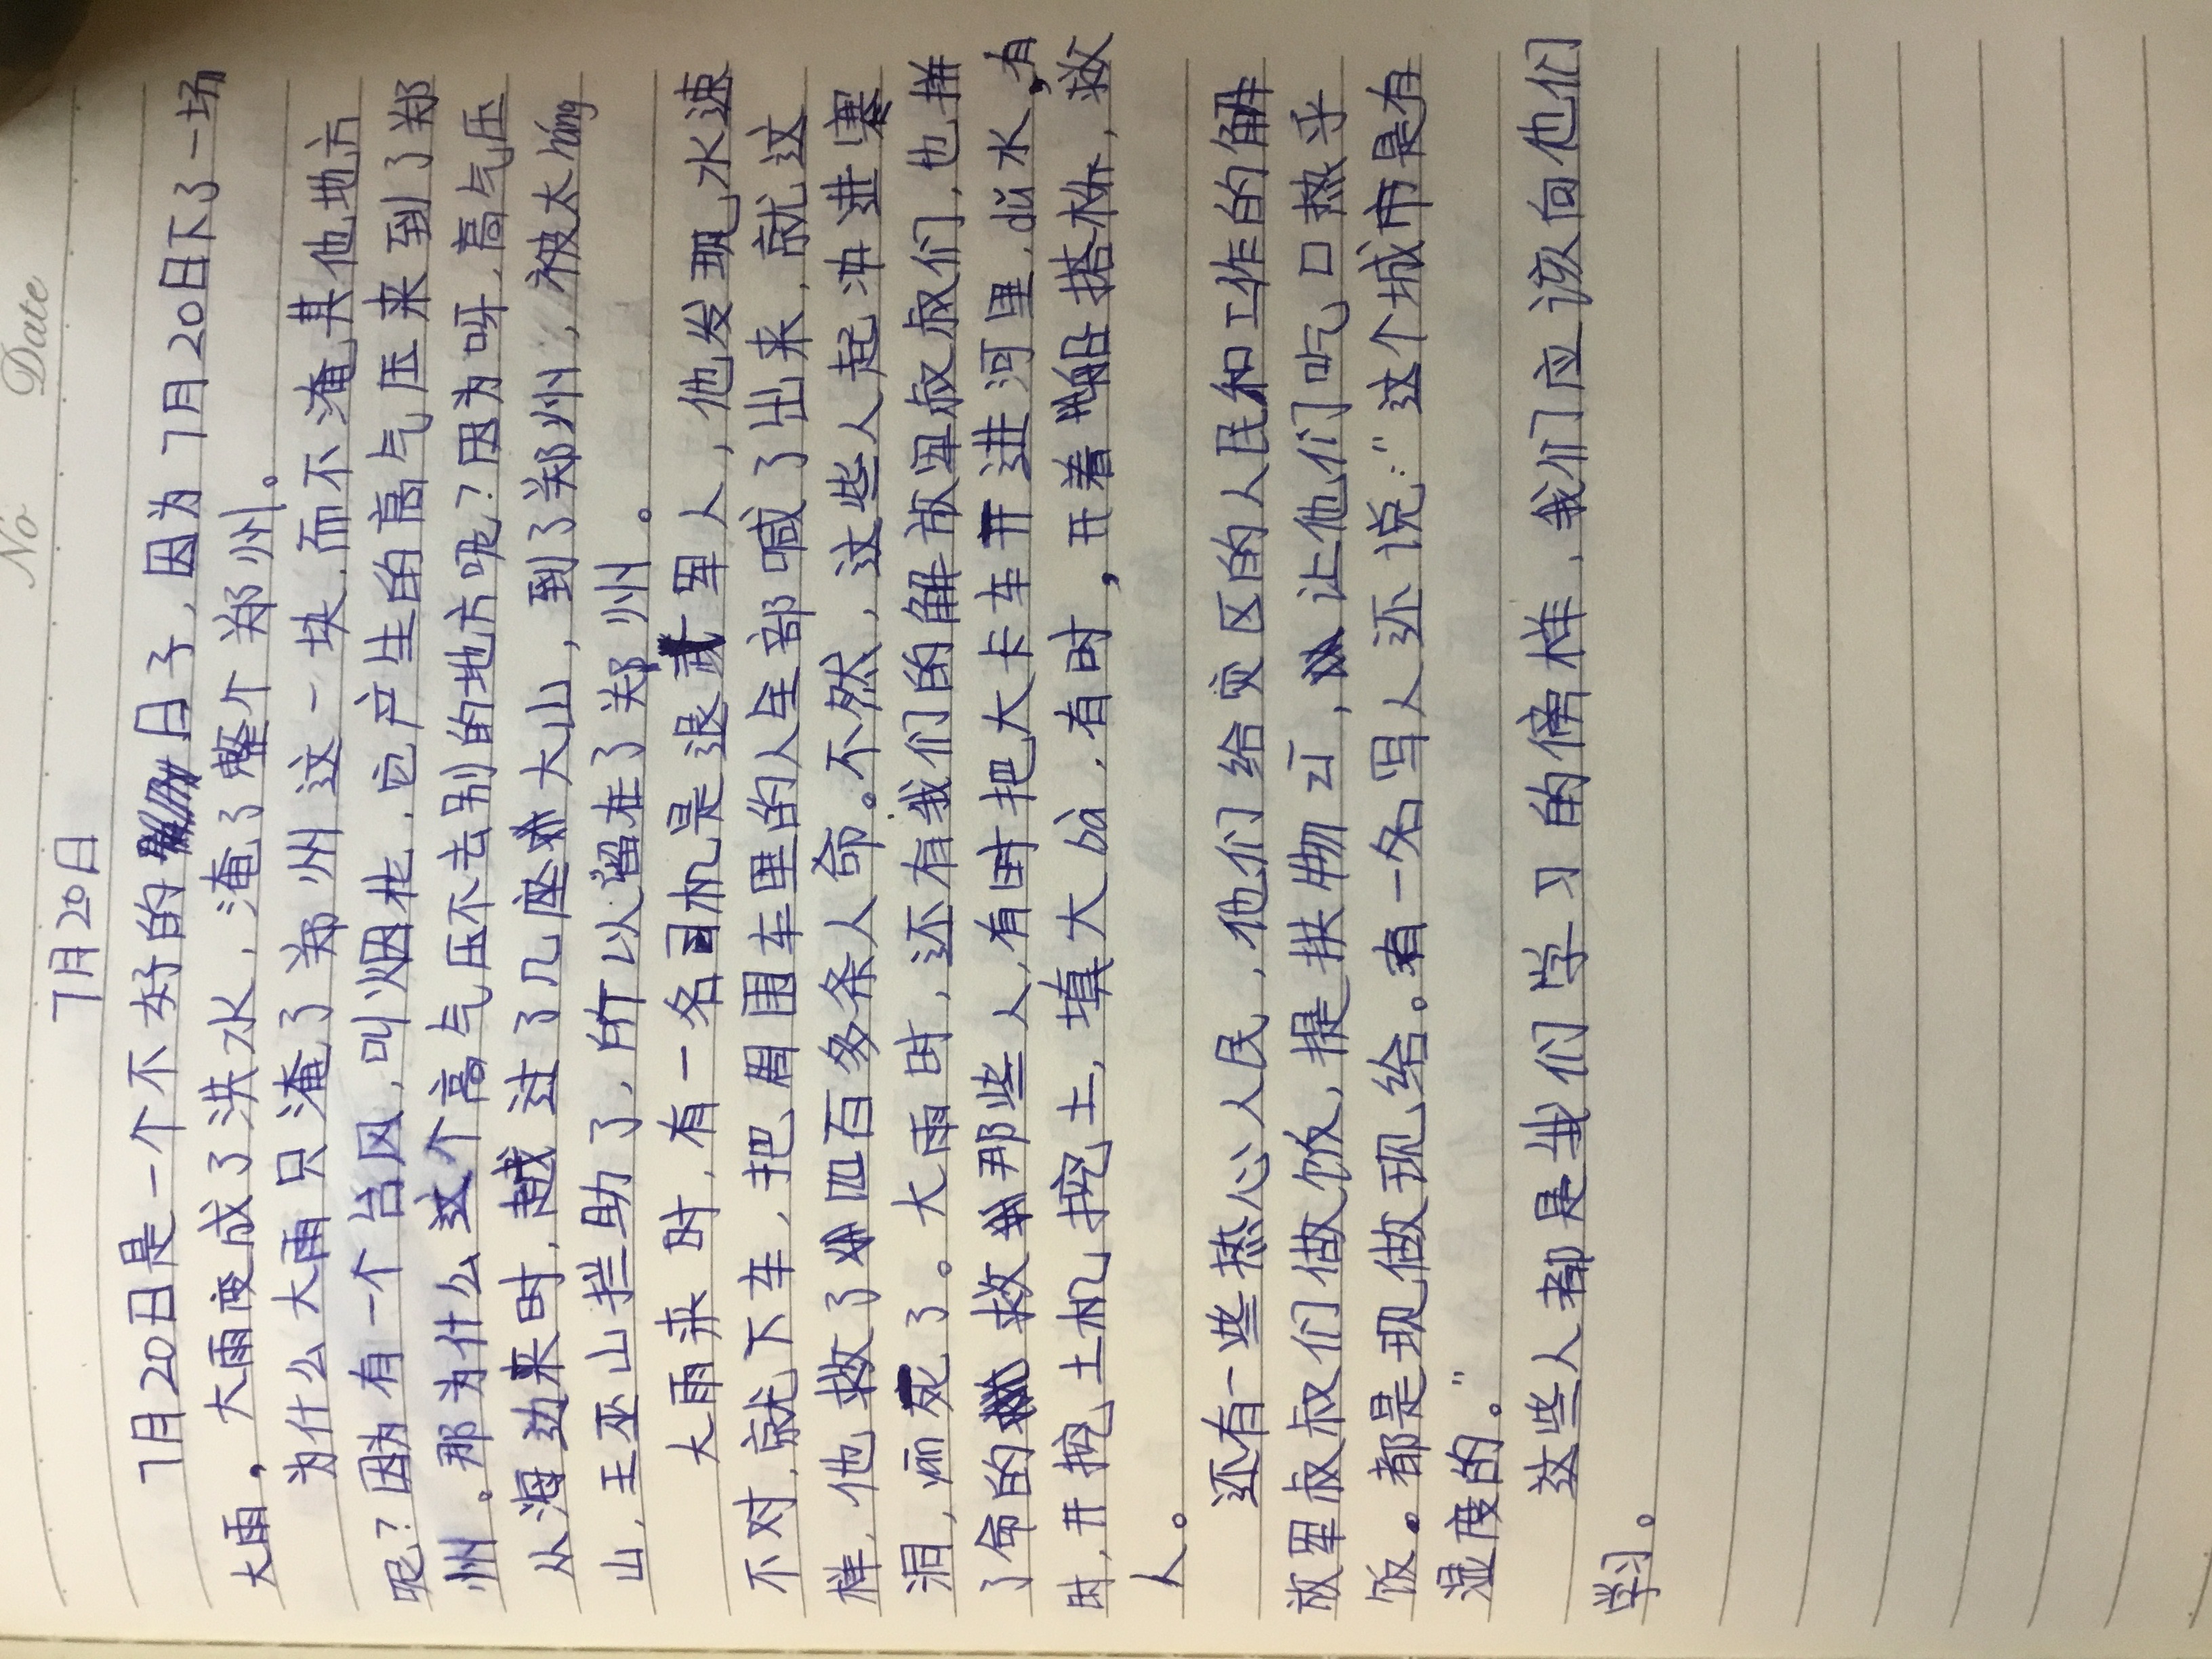 No Date
7月20日
7月20日是一个不好的日子，因为7月20日下了一场
大雨，大雨变成了洪水，淹了整个郑州。
为什么大雨只淹了郑州这一块，而不淹其他地方
呢？因为有一个台风，叫烟花，它产生的高气压来到了郑
州。那为什么这个高气压不去别的地方呢？因为呀，高气压
从海边来时，越过了几座大山，到了郑州，被太háng
山，王巫山拦助了，所以留在了郑州。
大雨来时，有一名司机是退军人，他发现水速
不对，就下车，把周围车里的人全部喊了出来，就这
样，他救了四百多条人命。不然，这些人起冲进寒
洞，而死了。大雨时，还有我们的解放军叔叔们，也拼
了命的救那些人，有时把大卡车开进河里，dǔ水，有
时，开挖土机挖土，填大bà，有时，开着船搭桥，救
人。
还有一些热心人民，他们给灾区的人民和工作的解
放军叔叔们做饭，提拱物，让他们吃口热乎
饭。都是现做现给。有一名军人还说：“这个城市是有
湿度的。”
这些人都是我们学习的傍样，我们应该向他们
学习。